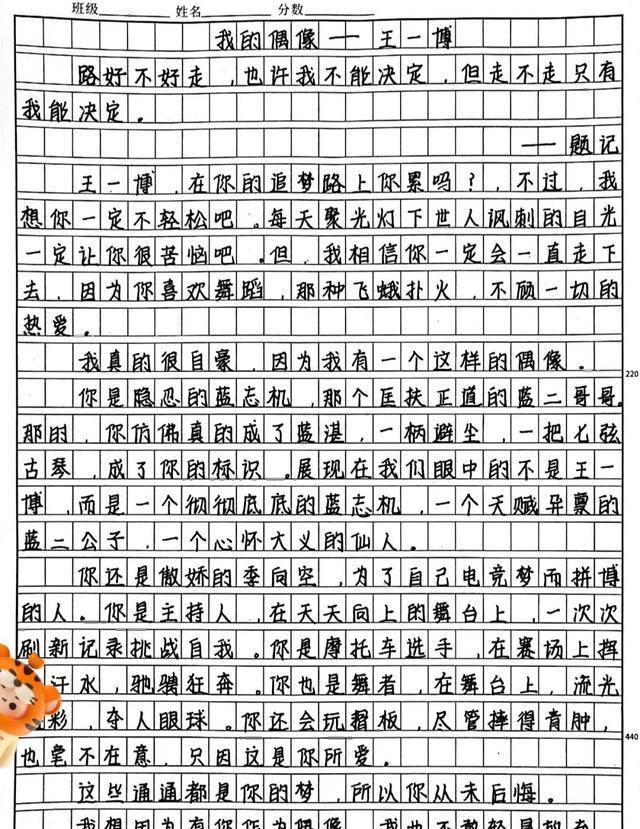 班级 姓名 分数
我的偶像——王一博
路好不好走,也许我不能决定,但走不走只有
我能决定。
——题记
王一博,在你的追梦路上你累吗?,不过,我
想你一定不轻松吧。每天聚光灯下世人讽刺的目光
一定让你很苦恼吧。但,我相信你一定会一直走下
去,因为你喜欢舞蹈,那种飞蛾扑火,不顾一切的
热爱。
我真的很自豪,因为我有一个这样的偶像。
220
你是隐忍的蓝忘机,那个匡扶正道的蓝二哥哥。
那时,你仿佛真的成了蓝湛,一柄避尘,一把七弦
古琴,成了你的标识。展现在我们眼中的不是王一
博,而是一个彻彻底底的蓝忘机,一个天赋异禀的
蓝二公子,一个心怀大义的仙人。
你还是傲娇的季向空,为了自己电竞梦而拼博
的人。你是主持人,在天天向上的舞台上,一次次
刷新记录挑战自我。你是摩托车选手,在赛场上挥
汗水,驰骋狂奔。你也是舞者,在舞台上,流光
彩,夺人眼球。你还会玩滑板,尽管摔得青肿,
440
也毫不在意,只因这是你所爱。
这些通通都是你的梦,所以你从未后悔。
我想因为有你作为偶像,我也不敢轻易放弃